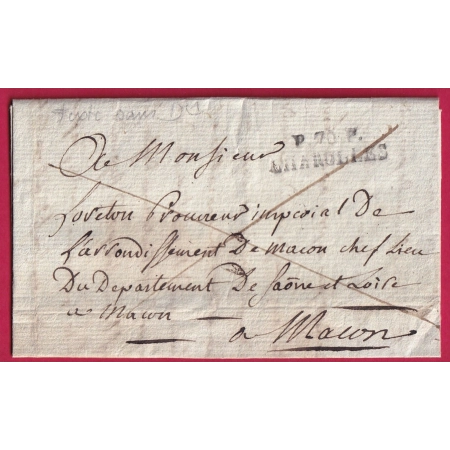 P. 70 P.
CHAROLLES
A Monsieur
Procureur imperial De
L'arrondissement De Macon chef Lieu
Du Departement De Saône et Loire
a Macon
a Macon